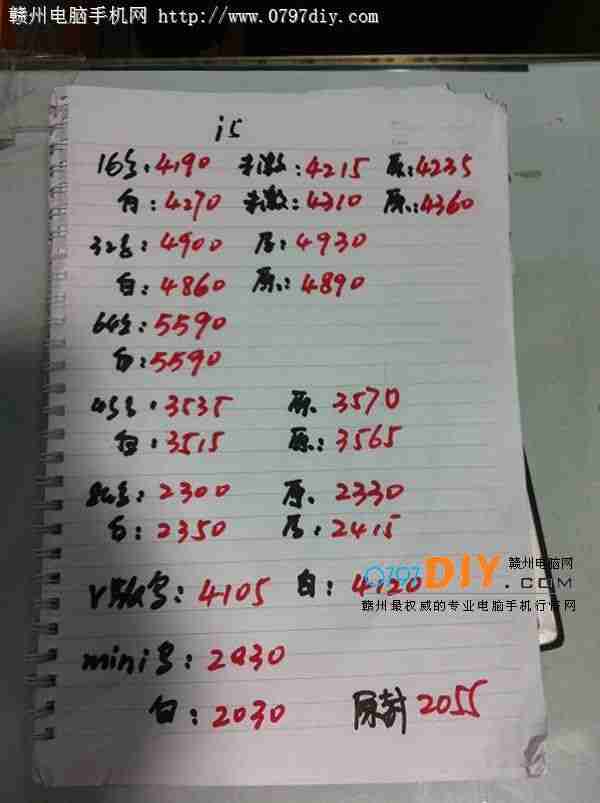 赣州电脑手机网 http://www.0797diy.com
i5
16黑:4190 未激:4215 原:4235
白:4270 未激:4310 原:4360
32黑:4900 原:4930
白:4860 原:4890
64黑:5590
白:5590
4S黑:3535 原:3570
白:3515 原:3565
8G黑:2300 原:2330
白:2350 原:2415
黑:4105 白:4120
0797DIY.COM 赣州电脑网
赣州最权威的专业电脑手机行情网
mini黑:2030
白:2030 原封2055